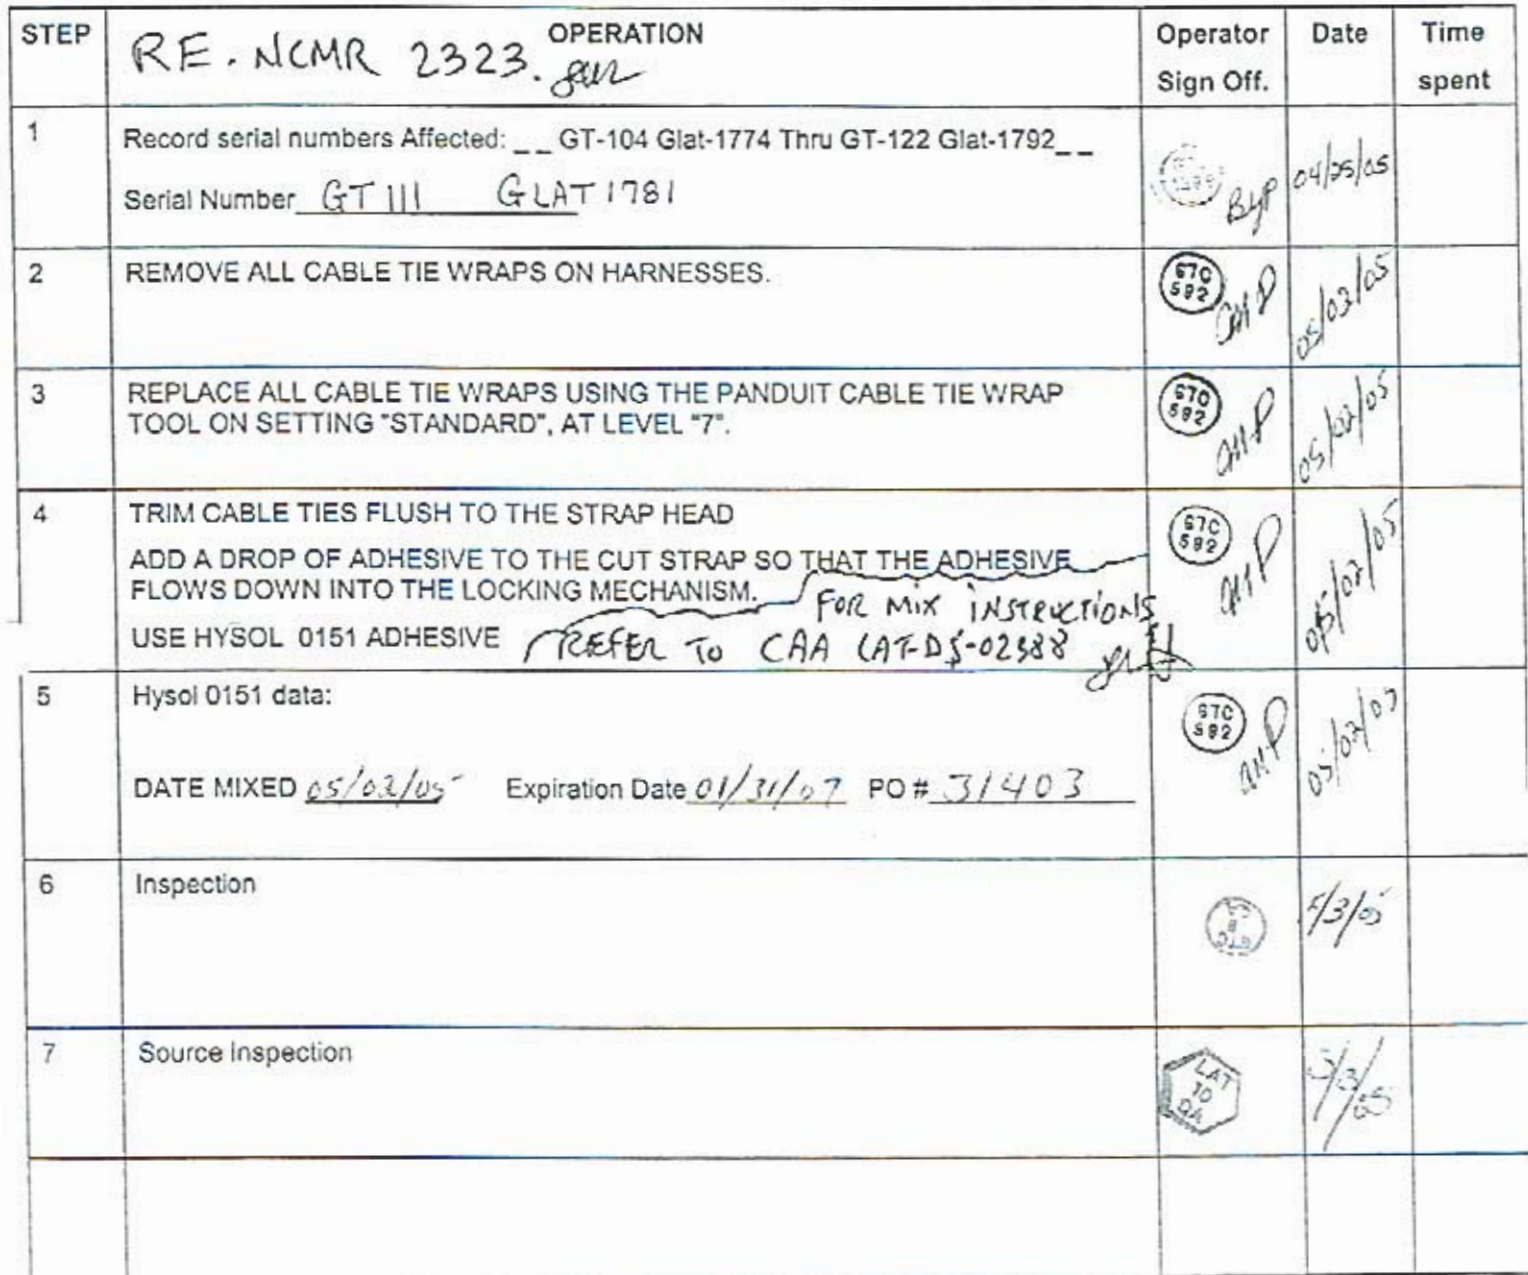 STEP OPERATION Operator Sign Off. Date Time spent
RE. NCMR 2323.
1 Record serial numbers Affected: _ _ GT-104 Glat-1774 Thru GT-122 Glat-1792_ _
Serial Number GT 111 GLAT 1781
04/25/05
2 REMOVE ALL CABLE TIE WRAPS ON HARNESSES.
GTC 592
05/02/05
3 REPLACE ALL CABLE TIE WRAPS USING THE PANDUIT CABLE TIE WRAP
TOOL ON SETTING "STANDARD", AT LEVEL "7".
GTC 592
05/02/05
4 TRIM CABLE TIES FLUSH TO THE STRAP HEAD
ADD A DROP OF ADHESIVE TO THE CUT STRAP SO THAT THE ADHESIVE
FLOWS DOWN INTO THE LOCKING MECHANISM.
FOR MIX INSTRUCTIONS
USE HYSOL 0151 ADHESIVE REFER TO CAA LAT-DS-02388
GTC 592
05/02/05
5 Hysol 0151 data:
GTC 592
DATE MIXED 05/02/05 Expiration Date 01/31/07 PO # 31403
6 Inspection
5/3/05
7 Source Inspection
LAT 10 QA
5/3/05